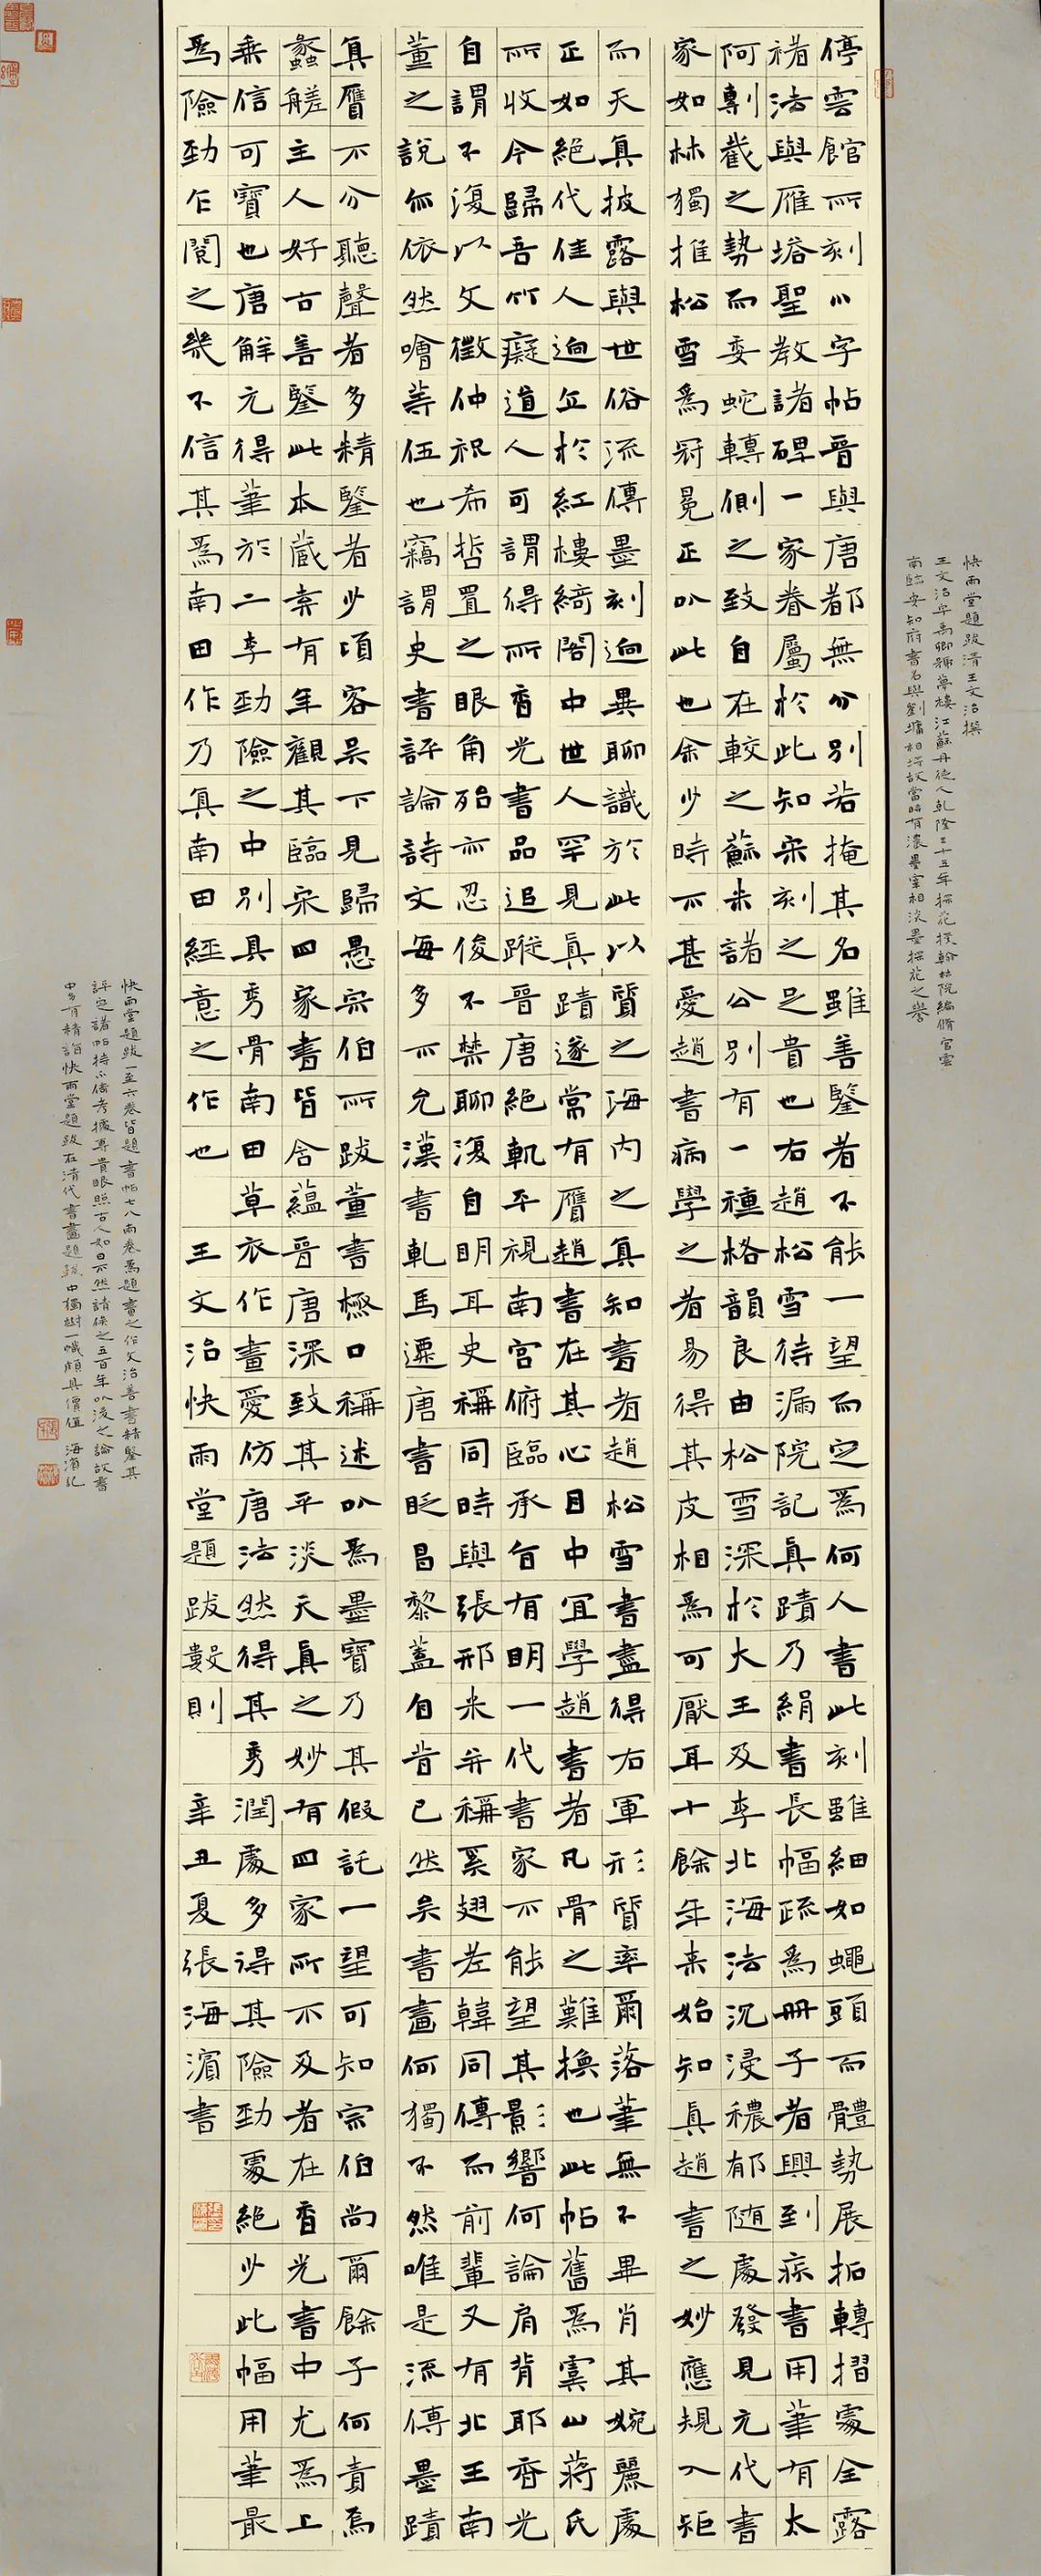 快雨堂題跋清王文治撰
王文治字禹卿號夢樓江蘇丹徒人乾隆二十五年探花授翰林院編脩官雲
南臨安知府書名與劉墉相埒故當時有濃墨宰相淡墨探花之譽
停雲館所刻小字帖晉與唐都無分別若掩其名雖善鑒者不能一望而定爲何人書此刻雖細如蠅頭而體勢展拓轉摺處全露
褚法與雁塔聖教諸碑一家眷屬於此知宋刻之足貴也右趙松雪待漏院記真蹟乃絹書長幅疏爲冊子者興到疾書用筆有太
阿剸截之勢而委蛇轉側之致自在較之蘇米諸公別有一種格韻良由松雪深於大王及李北海法沉浸穠郁隨處發見元代書
家如林獨推松雪爲冠冕正以此也余少時不甚愛趙書病學之者易得其皮相爲可厭耳十餘年來始知真趙書之妙應規入矩
而天真披露與世俗流傳墨刻迥異聊識於此以質之海内之真知書者趙松雪書盡得右軍形質率爾落筆無不畢肖其婉麗處
正如絕代佳人迥立於紅樓綺閣中世人罕見真蹟遂常有贗趙書在其心目中宜學趙書者凡骨之難換也此帖舊爲虞山蔣氏
所收今歸吾竹癡道人可謂得所香光書品追蹤晉唐絕軌平視南宮俯臨承旨有明一代書家不能望其影響何論肩背耶香光
自謂不復以文徵仲祝希哲置之眼角殆亦忍俊不禁聊復自明耳史稱同時與張邢米并稱奚翅老韓同傳而前輩又有北王南
董之說亦依然噲等伍也竊謂史書評論詩文每多不允漢書軋馬遷唐書眨昌黎蓋自昔已然矣書畫何獨不然唯是流傳墨蹟
真贗不分聽聲者多精鑒者少頃客吳下見歸愚宗伯所跋董書極口稱述以爲墨寶乃其假託一望可知宗伯尚爾餘子何責焉
蠡艖主人好古善鑒此本藏弆有年觀其臨宋四家書皆含蘊晉唐深致其平淡天真之妙有四家所不及者在香光書中尤爲上
乘信可寶也唐解元得筆於二李勁險之中別具秀骨南田草衣作畫愛仿唐法然得其秀潤處多得其險勁處絕少此幅用筆最
爲險勁乍閱之幾不信其爲南田作乃真南田經意之作也 王文治快雨堂題跋數則 辛丑夏張海濱書
快雨堂題跋一至六卷皆題書帖七八兩卷爲題畫之作文治善書精鑒其
評定諸帖持不偝考據專貴眼照古人如曰不然請俟之五百年以後之論故書
中多有精詣快雨堂題跋在清代書畫題跋中獨樹一幟頗具價值 海濱記